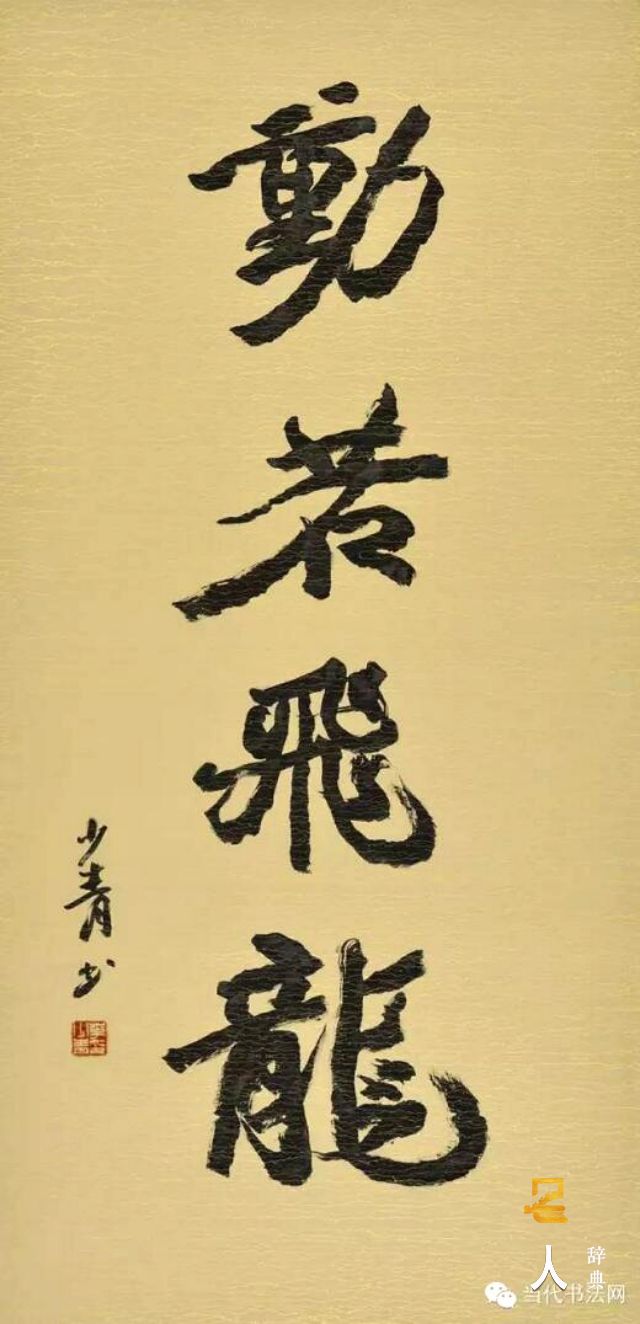 動若飛龍
少青书
名人辞典
当代书法网